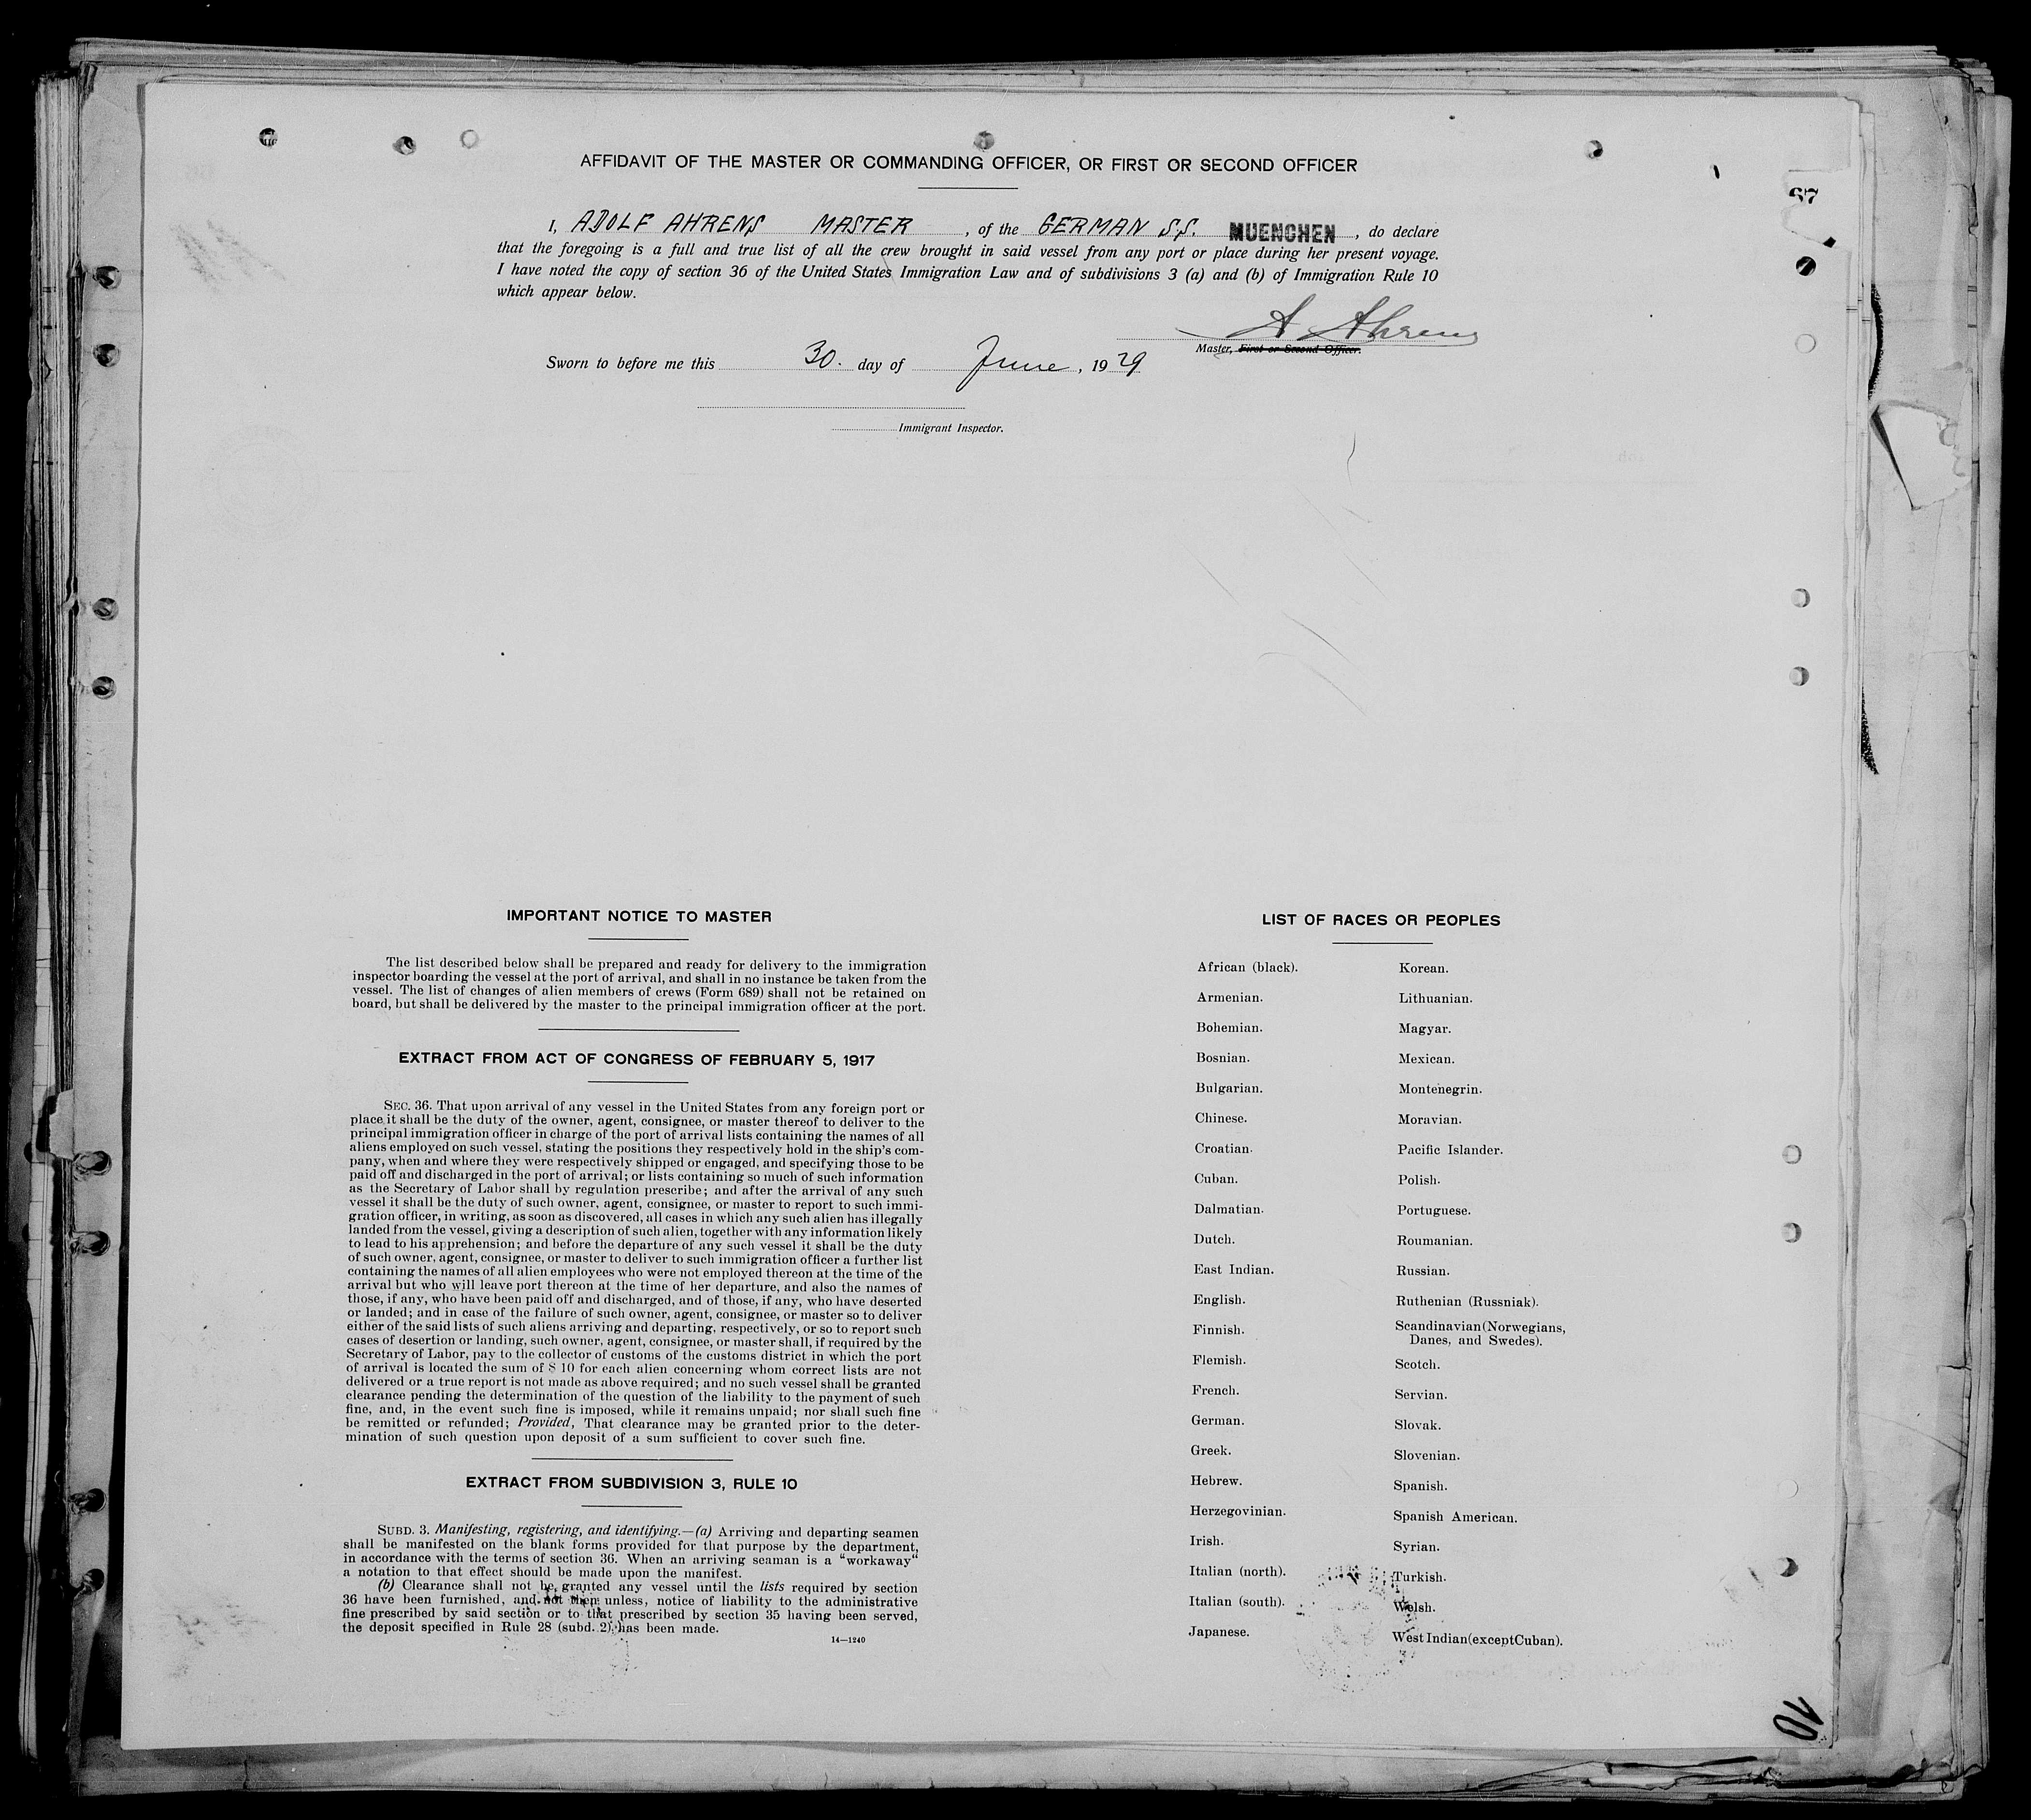 AFFIDAVIT OF THE MASTER OR COMMANDING OFFICER, OR FIRST OR SECOND OFFICER
67
I, ADOLF AHRENS MASTER, of the GERMAN S.S. MUENCHEN, do declare
that the foregoing is a full and true list of all the crew brought in said vessel from any port or place during her present voyage.
I have noted the copy of section 36 of the United States Immigration Law and of subdivisions 3 (a) and (b) of Immigration Rule 10
which appear below.
A Ahrens
Master, First or Second Officer.
Sworn to before me this 30. day of June, 1929
Immigrant Inspector.
IMPORTANT NOTICE TO MASTER
The list described below shall be prepared and ready for delivery to the immigration
inspector boarding the vessel at the port of arrival, and shall in no instance be taken from the
vessel. The list of changes of alien members of crews (Form 689) shall not be retained on
board, but shall be delivered by the master to the principal immigration officer at the port.
EXTRACT FROM ACT OF CONGRESS OF FEBRUARY 5, 1917
SEC. 36. That upon arrival of any vessel in the United States from any foreign port or
place it shall be the duty of the owner, agent, consignee, or master thereof to deliver to the
principal immigration officer in charge of the port of arrival lists containing the names of all
aliens employed on such vessel, stating the positions they respectively hold in the ship's com-
pany, when and where they were respectively shipped or engaged, and specifying those to be
paid off and discharged in the port of arrival; or lists containing so much of such information
as the Secretary of Labor shall by regulation prescribe; and after the arrival of any such
vessel it shall be the duty of such owner, agent, consignee, or master to report to such immi-
gration officer, in writing, as soon as discovered, all cases in which any such alien has illegally
landed from the vessel, giving a description of such alien, together with any information likely
to lead to his apprehension; and before the departure of any such vessel it shall be the duty
of such owner, agent, consignee, or master to deliver to such immigration officer a further list
containing the names of all alien employees who were not employed thereon at the time of the
arrival but who will leave port thereon at the time of her departure, and also the names of
those, if any, who have been paid off and discharged, and of those, if any, who have deserted
or landed; and in case of the failure of such owner, agent, consignee, or master so to deliver
either of the said lists of such aliens arriving and departing, respectively, or so to report such
cases of desertion or landing, such owner, agent, consignee, or master shall, if required by the
Secretary of Labor, pay to the collector of customs of the customs district in which the port
of arrival is located the sum of $ 10 for each alien concerning whom correct lists are not
delivered or a true report is not made as above required; and no such vessel shall be granted
clearance pending the determination of the question of the liability to the payment of such
fine, and, in the event such fine is imposed, while it remains unpaid; nor shall such fine
be remitted or refunded; Provided, That clearance may be granted prior to the deter-
mination of such question upon deposit of a sum sufficient to cover such fine.
EXTRACT FROM SUBDIVISION 3, RULE 10
SUBD. 3. Manifesting, registering, and identifying.—(a) Arriving and departing seamen
shall be manifested on the blank forms provided for that purpose by the department,
in accordance with the terms of section 36. When an arriving seaman is a "workaway"
a notation to that effect should be made upon the manifest.
(b) Clearance shall not be granted any vessel until the lists required by section
36 have been furnished, and not then unless, notice of liability to the administrative
fine prescribed by said section or to that prescribed by section 35 having been served,
the deposit specified in Rule 28 (subd. 2) has been made.
14—1240
LIST OF RACES OR PEOPLES
African (black).
Armenian.
Bohemian.
Bosnian.
Bulgarian.
Chinese.
Croatian.
Cuban.
Dalmatian.
Dutch.
East Indian.
English.
Finnish.
Flemish.
French.
German.
Greek.
Hebrew.
Herzegovinian.
Irish.
Italian (north).
Italian (south).
Japanese.
Korean.
Lithuanian.
Magyar.
Mexican.
Montenegrin.
Moravian.
Pacific Islander.
Polish.
Portuguese.
Roumanian.
Russian.
Ruthenian (Russniak).
Scandinavian (Norwegians,
Danes, and Swedes).
Scotch.
Servian.
Slovak.
Slovenian.
Spanish.
Spanish American.
Syrian.
Turkish.
Welsh.
West Indian (except Cuban).
10